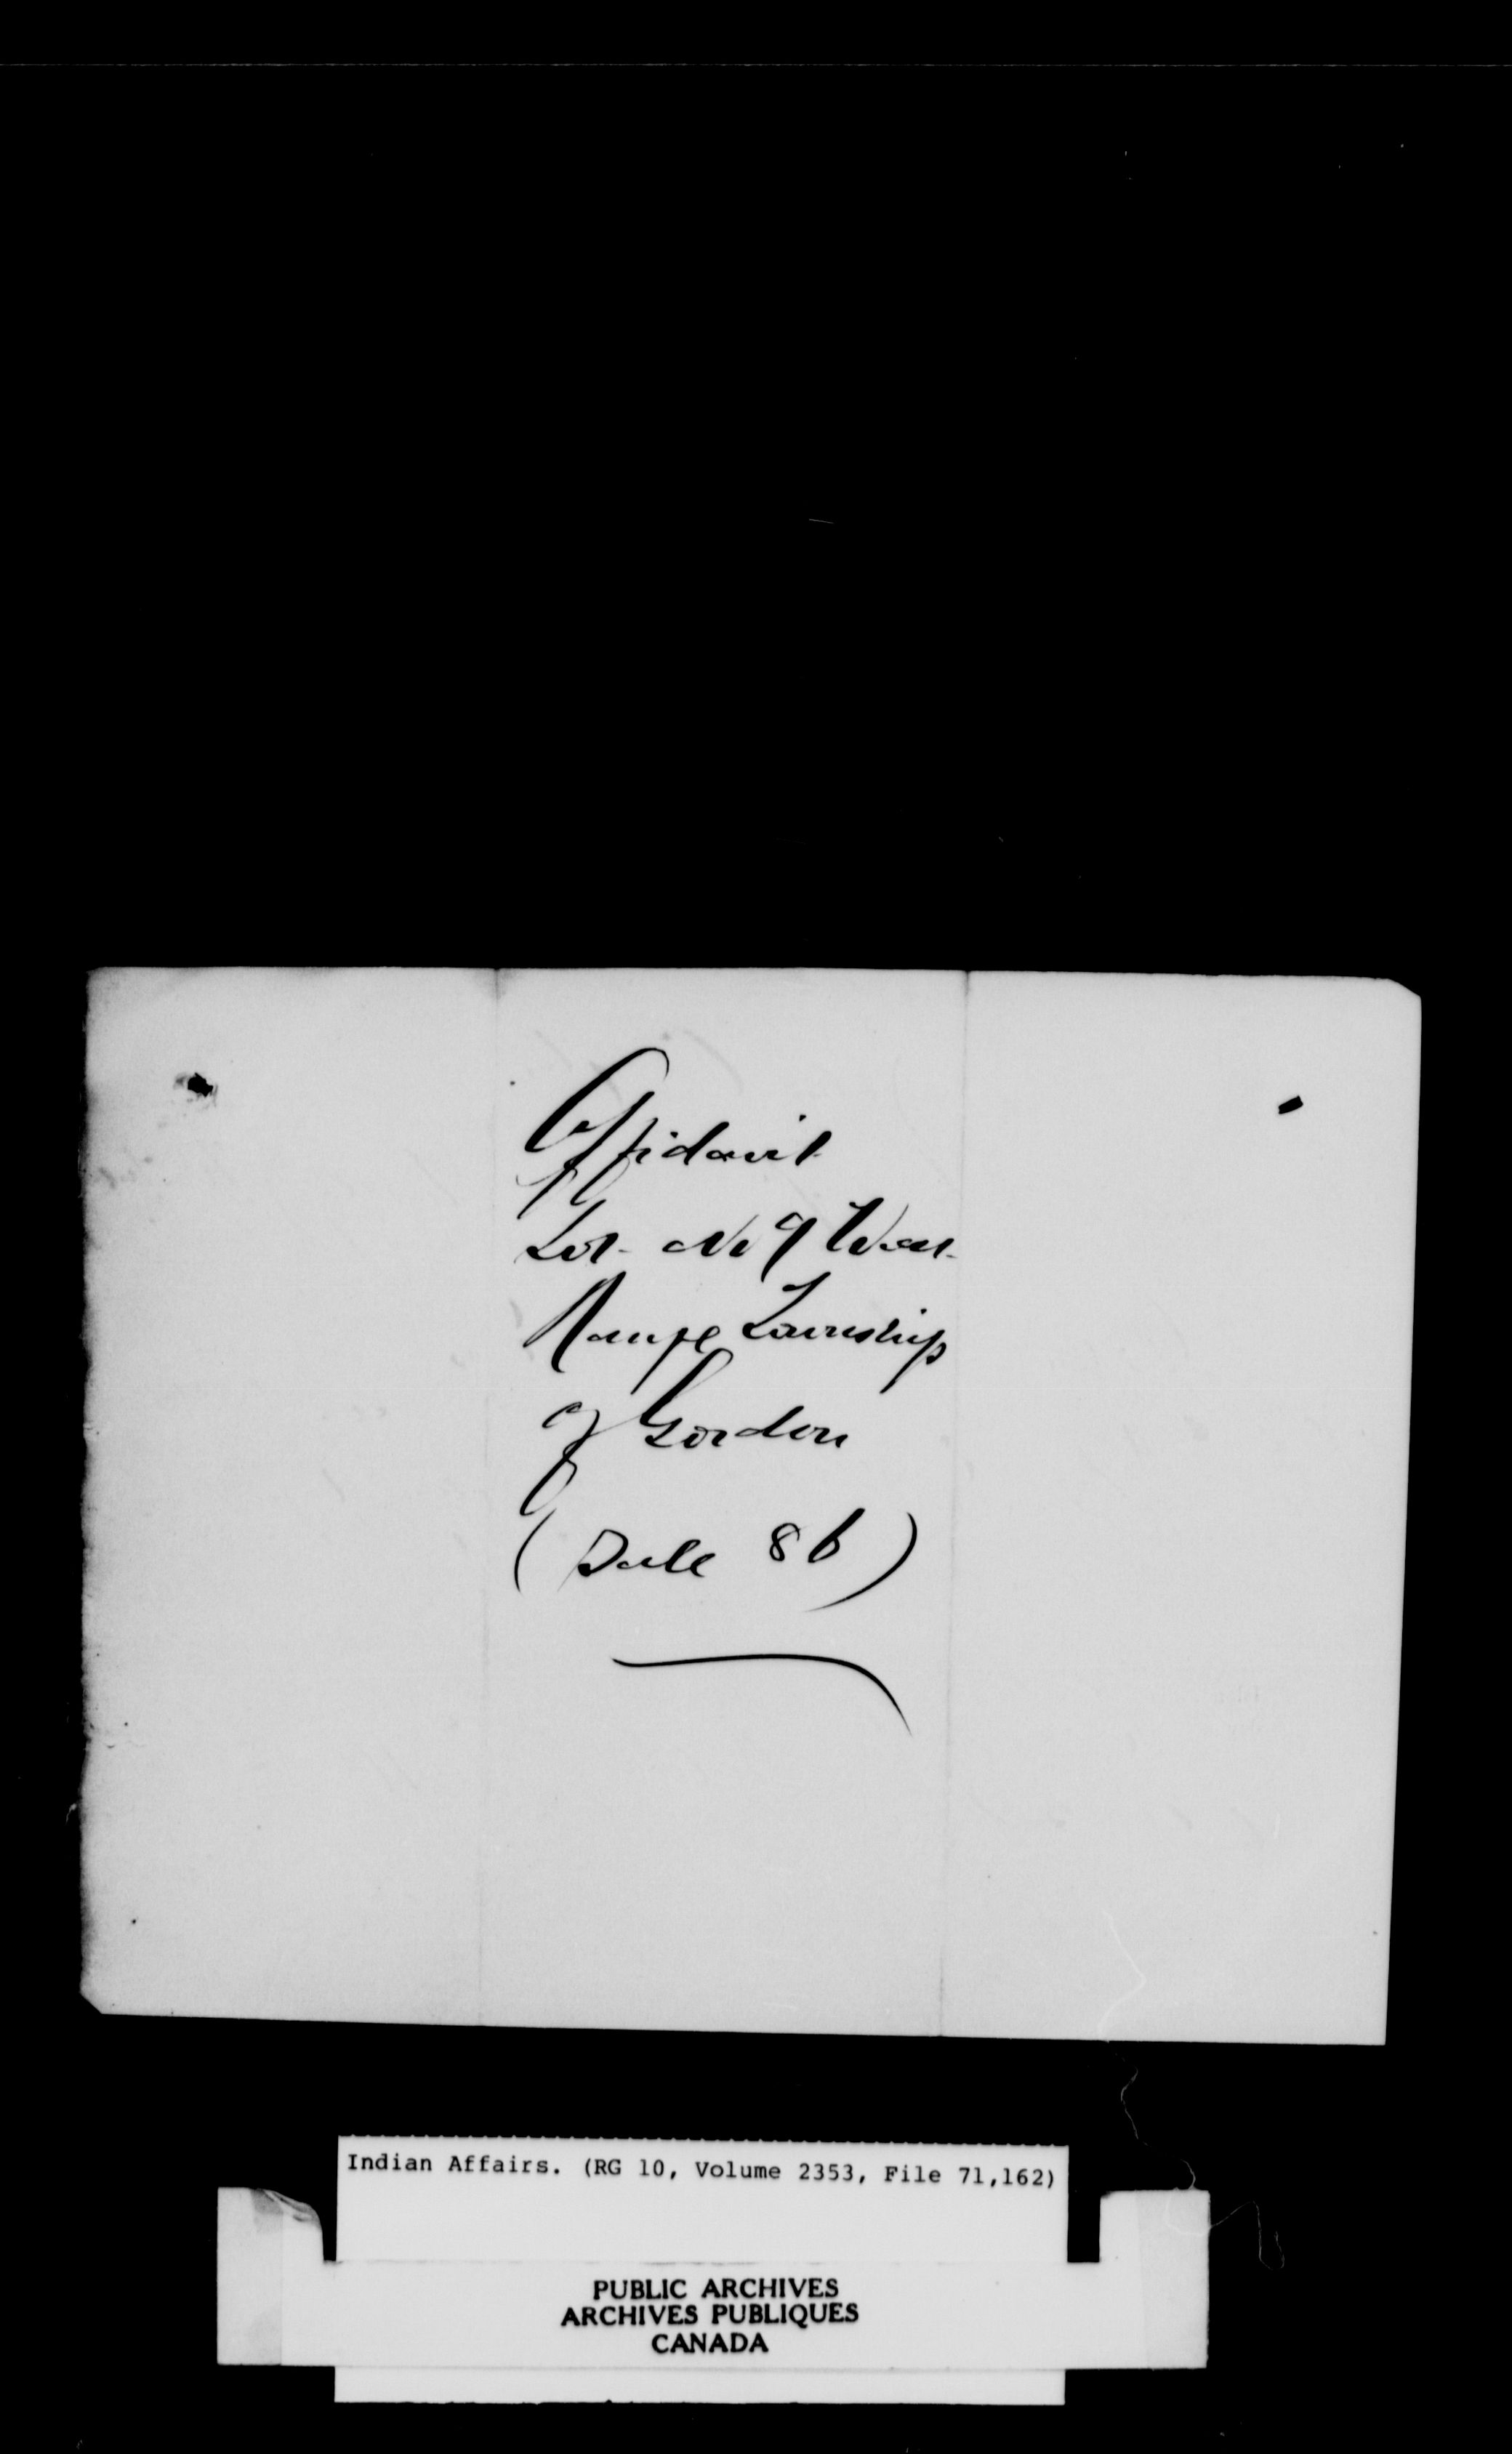 Affidavit
Lot No 9 West
Range Township
of Gordon
(Sale 86)
Indian Affairs. (RG 10, Volume 2353, File 71,162)
PUBLIC ARCHIVES
ARCHIVES PUBLIQUES
CANADA